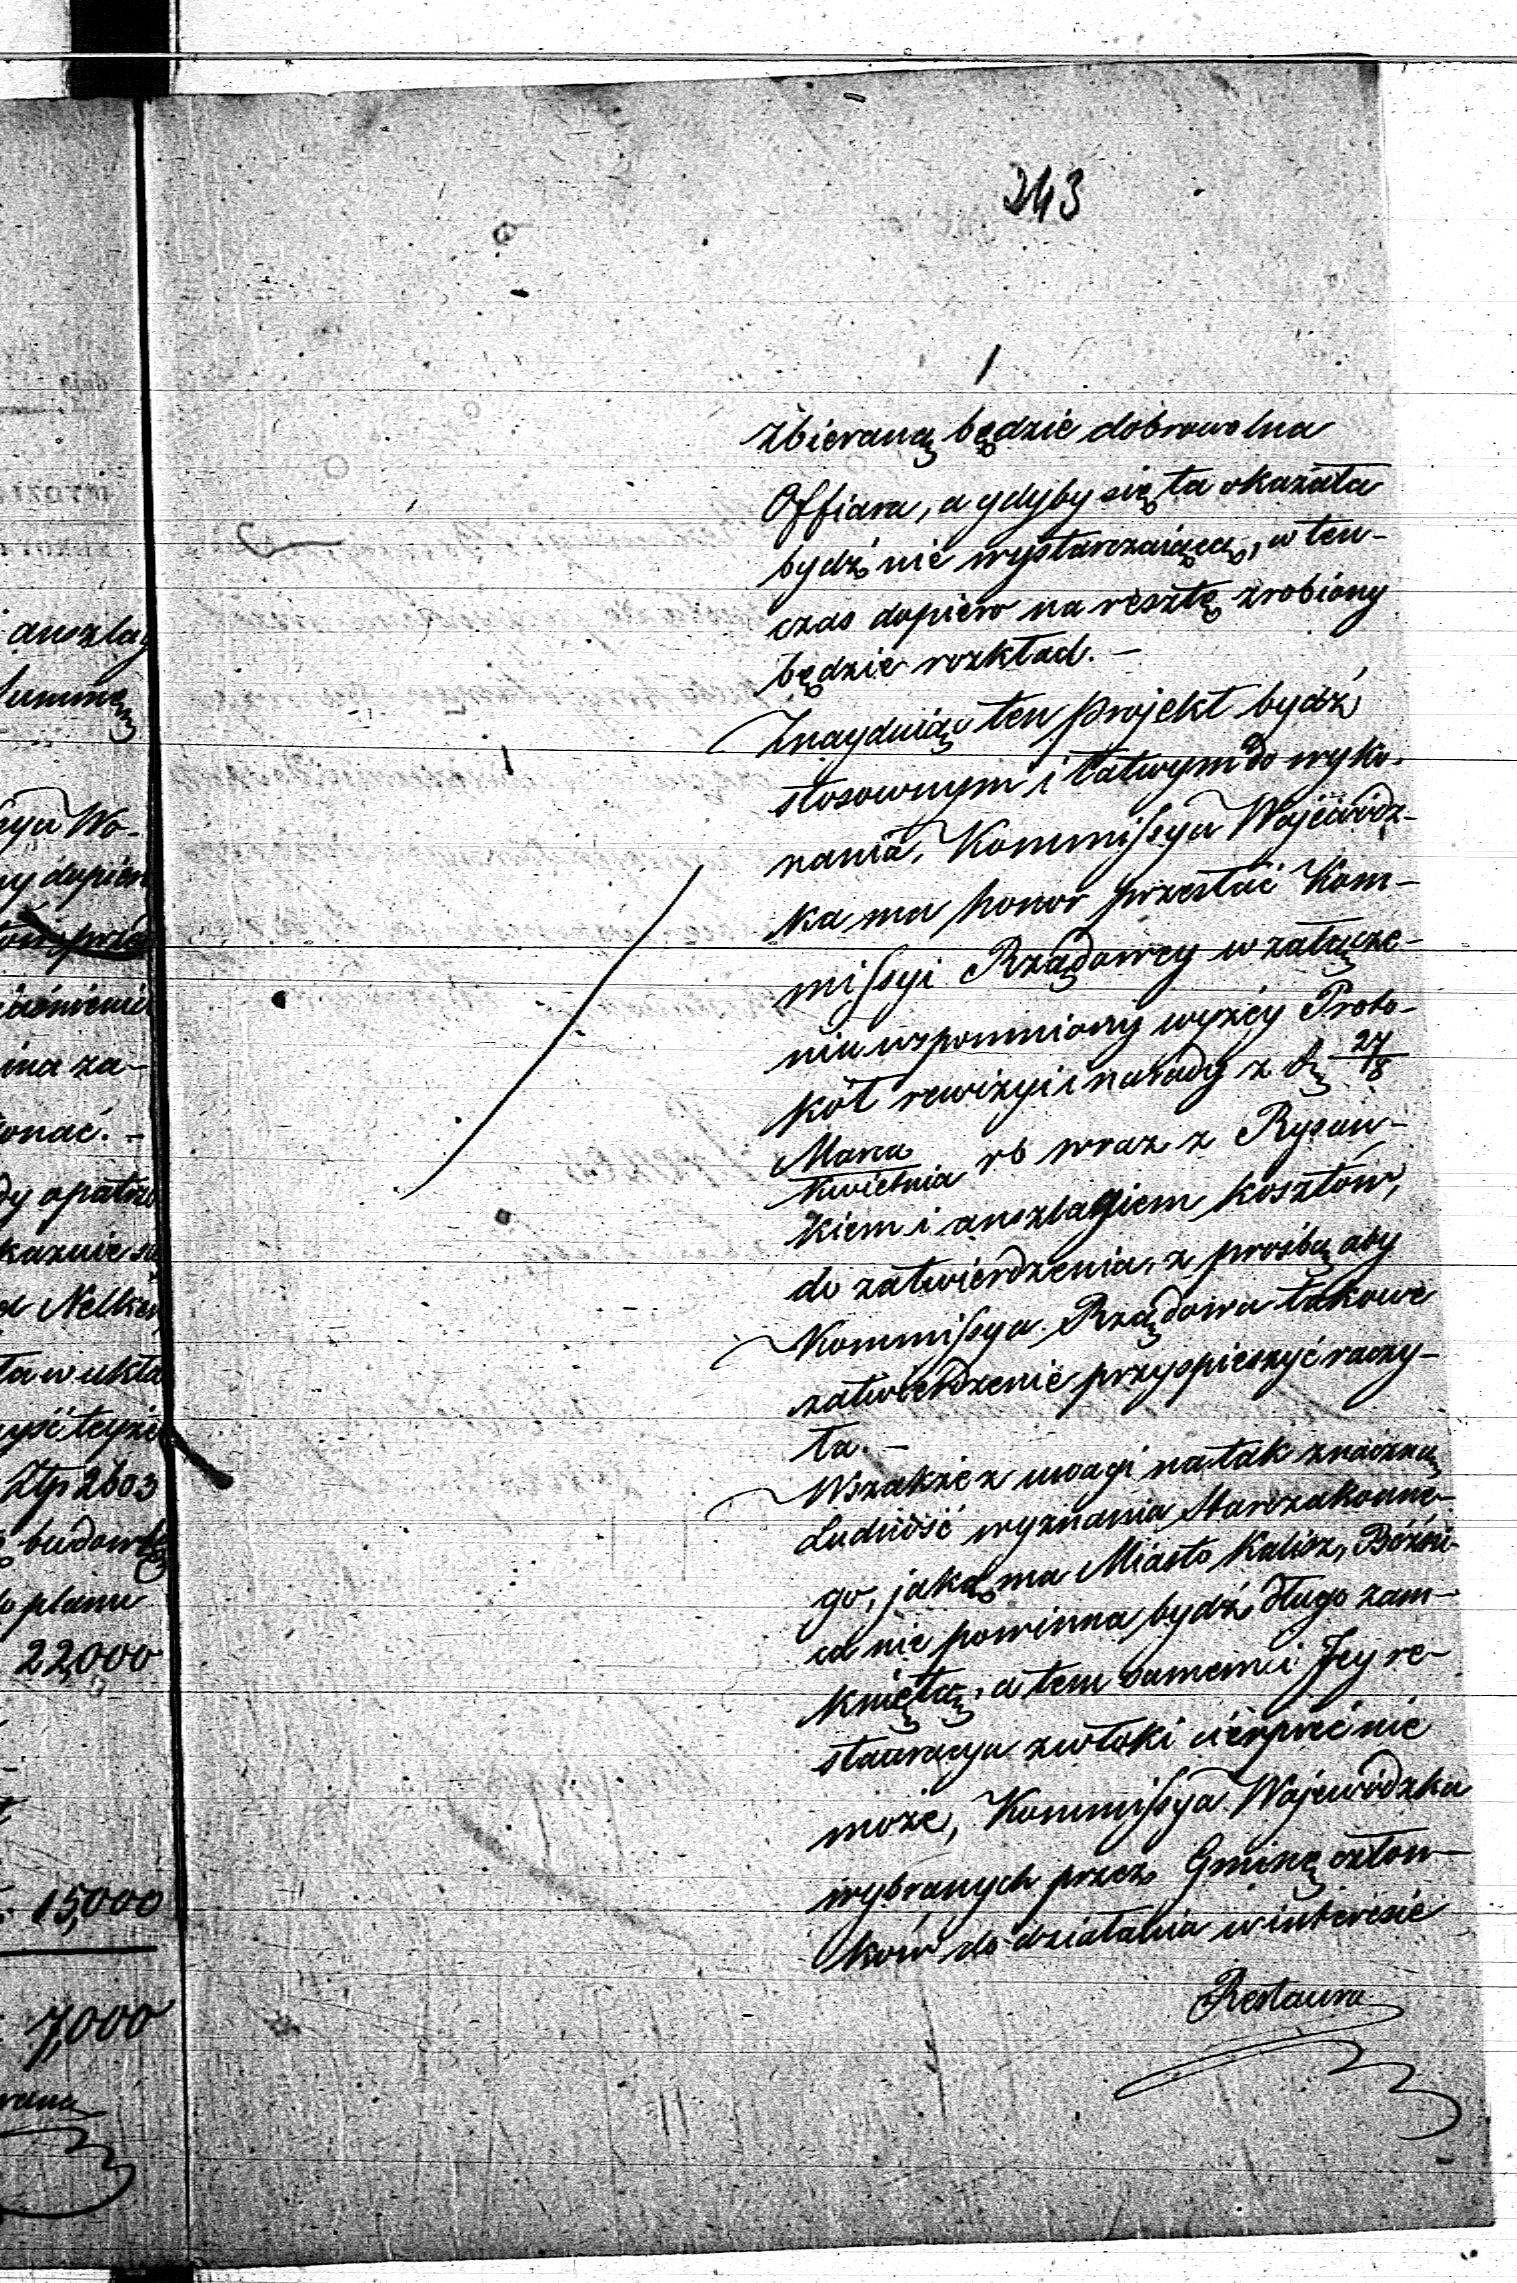 243
zbieraną będzie dobrowolna
Offiara, a gdyby się ta okazała
bydź nie wystarczaiącą, w ten-
czas dopiero na resztę zrobiony
będzie rozkład. -
Znayduiąc ten projekt bydź
stosownym i łatwym do wyko-
nania, Kommissya Wojewódz-
ka ma honor przesłać Kom-
missyi Rządowey w załącze-
niu wspomniony wyżéy Proto-
kół rewizyi i narady z d. 27/8
Marca/Kwietnia rb wraz z Rysun-
kiem i anszlagiem kosztów,
do zatwierdzenia, z prośbą aby
Kommissya Rządowa takowe
zatwierdzenie przyspieszyć raczy-
ła. -
Wszakże z uwagi na tak znaczną
Ludność wyznania Starozakonne-
go, jaką ma Miasto Kalisz, Bóźni-
ca nie powinna bydź długo zam-
kniętą, a tem samem i Jey re-
stauracya zwłoki cierpieć nie
może, Kommissya Wojewódzka
wybranych przez Gminę człon-
ków do działania w interesie
Restaura
anszlag
Summę
Wo-
ny dopiero
ina za-
konać. -
dy opatrzo
kazuie się
Nelken
ta w ukła
teyże
Złp 2603
budowlę
do planu
22,000
15,000
7,000